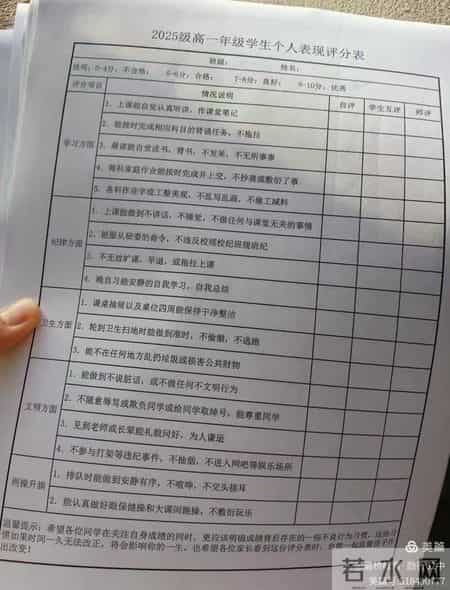 2025级高一年级学生个人表现评分表
班级: 姓名:
说明: 0-4分: 不合格; 5-6分: 合格; 7-8分: 良好; 9-10分: 优秀
评价项目 情况说明 自评 学生互评 师评
学习方面
1、上课能自觉认真听讲、作课堂笔记
2、能按时完成相应科目的背诵任务、不拖拉
3、晨读能自觉读书、背书、不发呆、不无所事事
4、每科家庭作业能按时完成并上交、不抄袭或敷衍了事
5、各科作业字迹工整美观、不乱写乱画、不偷工减料
纪律方面
1、上课能做到不讲话、不睡觉、不做任何与课堂无关的事情
2、能服从班委的命令、不违反校规校纪班规班纪
3、不无故旷课、早退、或拖拉上课
4、晚自习能安静的自我学习、自我总结
卫生方面
1、课桌抽屉以及桌位四周能保持干净整洁
2、轮到卫生扫地时能做到准时、不偷懒、不逃跑
3、能不在任何地方乱扔垃圾或损害公共财物
文明方面
1、能做到不说脏话、或不做任何不文明行为
2、不随意辱骂或欺负同学或给同学取绰号、能尊重同学
3、见到老师或长辈能礼貌问好、为人谦逊
4、不参与打架等违纪事件、不抽烟、不进入网吧等娱乐场所
两操升旗
1、排队时能做到安静有序、不喧哗、不交头接耳
2、能认真做好眼保健操和大课间跑操、不敷衍玩乐
温馨提示: 希望各位同学在关注自身成绩的同时, 更应该明确成绩背后存在的一些不良行为习惯, 这些习
惯如果时间一久无法改正, 将会影响你的一生。也希望各位家长看到这份评分表时,
出改变!
美篇
若水网